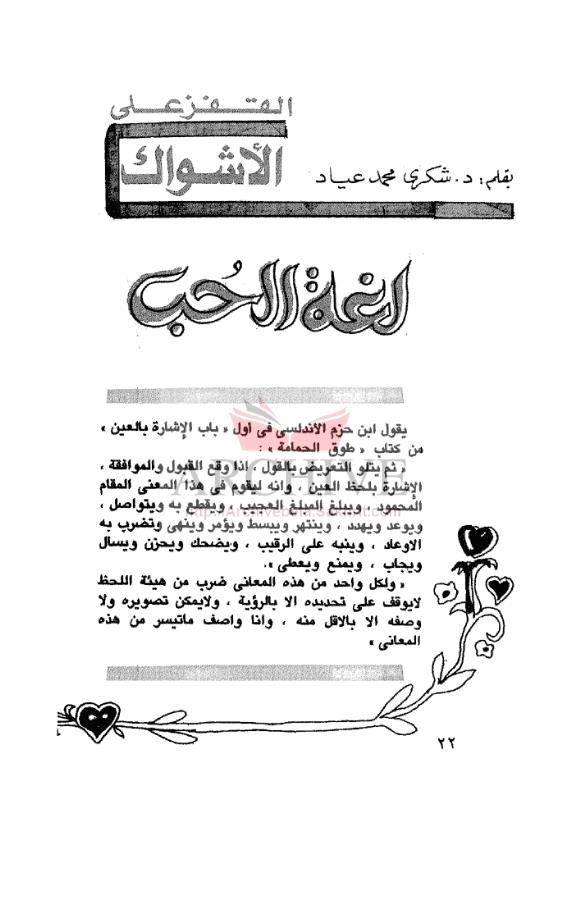 القفز على
الأشواك
بقلم: د. شكرى محمد عياد
لغة الحُب
يقول ابن حزم الأندلسى فى أول « باب الإشارة بالعين »
من كتاب « طوق الحمامة » :
« ثم يتلو التعريض بالقول ، اذا وقع القبول والموافقة ،
الإشارة بلحظ العين ، وانه ليقوم فى هذا المعنى المقام
المحمود ، ويبلغ المبلغ العجيب ، ويقطع به ويتواصل ،
ويوعد ويهدد ، وينتهر ويبسط ويؤمر وينهى وتضرب به
الاوعاد ، وينبه على الرقيب ، ويضحك ويحزن ويسأل
ويجاب ، ويمنع ويعطى» .
« ولكل واحد من هذه المعانى ضرب من هيئة اللحظ
لايوقف على تحديده الا بالرؤية ، ولايمكن تصويره ولا
وصفه الا بالاقل منه ، وانا واصف ماتيسر من هذه
المعانى »
ARCHIVE
٢٢